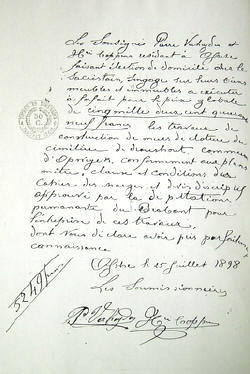 Les Soussignés Pierre Vasteyden et
Hri Cooppens résidant à Assche
faisant élection de domicile chez le
Sacristain, s'engage sur leurs biens
meubles et immeubles a exécuter
à forfait pour le prix globale
de cinq mille deux cent quarante
neuf francs les travaux de
construction de murs de clôture du
cimitière de Droeshout, commune
d'Opwyck, conformément aux plans
métré, clause et conditions du
Cahier des charges et devis descriptif
approuvé par la députation
permanante du Brabant pour
l'entreprise de ces travaux,
dont nous déclare avoir pris parfaite
connaissance
Assche le 25 juillet 1898
Les Soumissionnaires
5249 francs